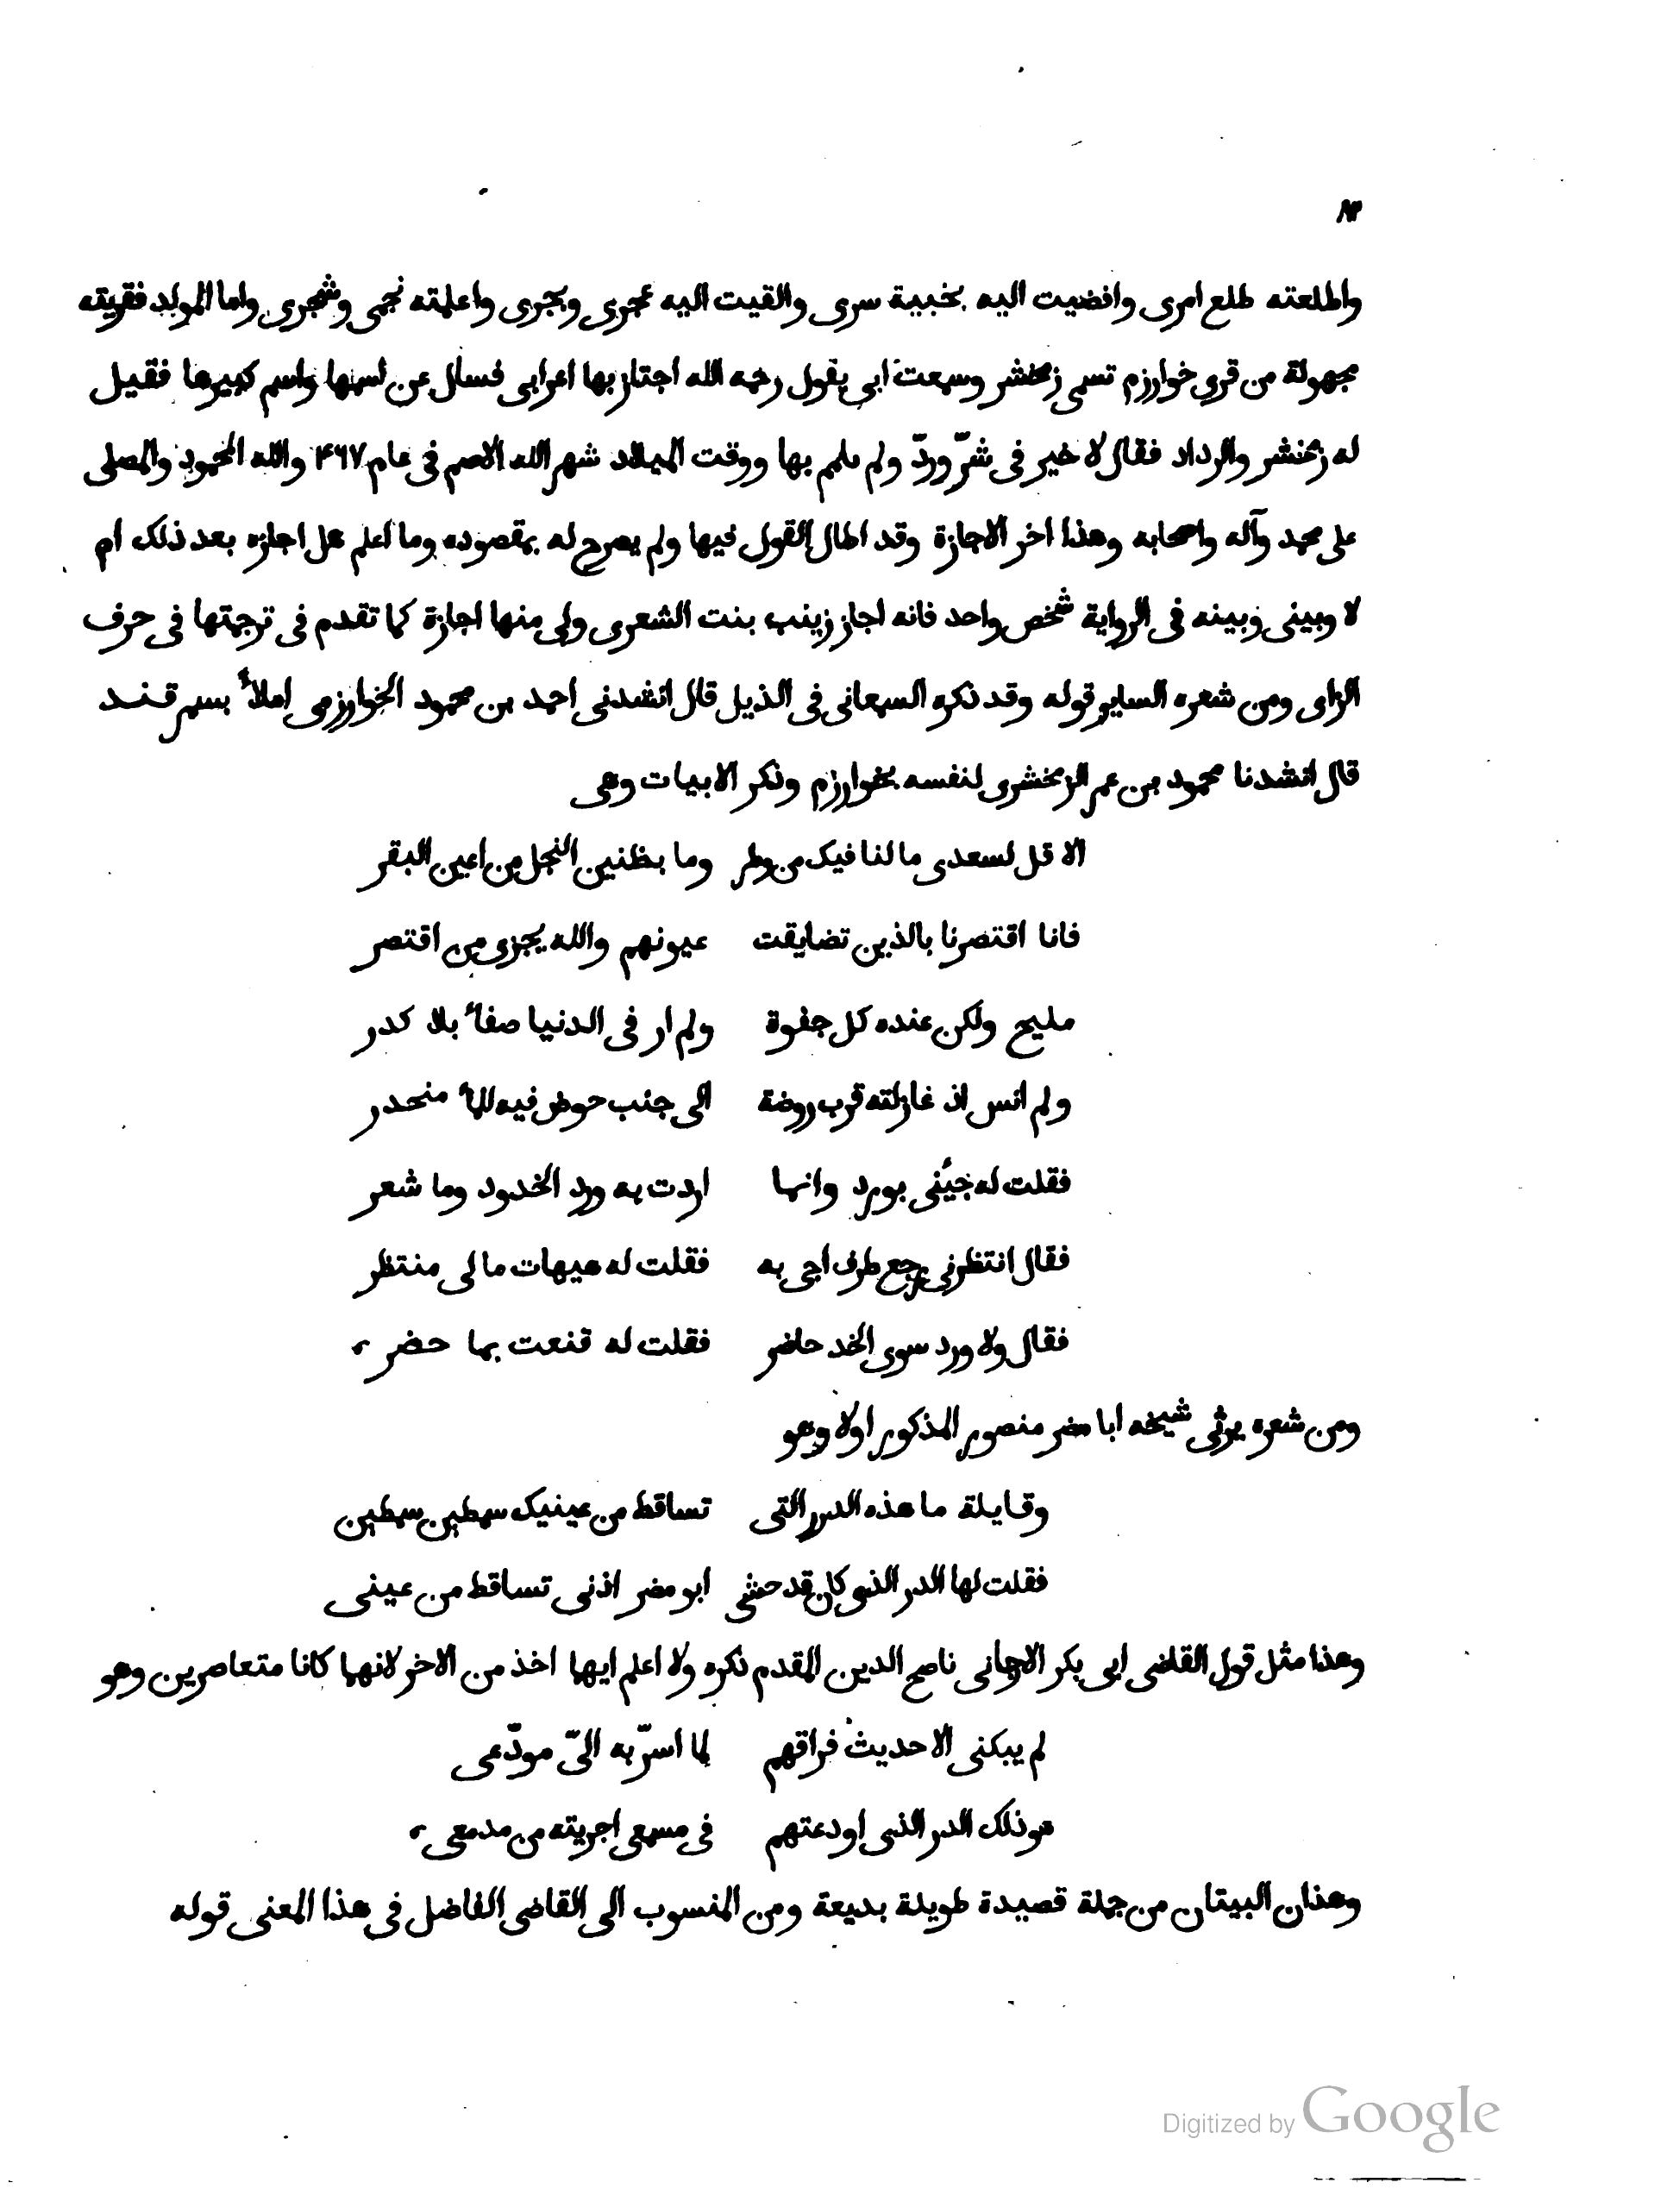 واطلعته طلع امرى وافضيت اليه بخبية سرى والقيت اليه عجرى وبجرى واعلمته نجمى وشجرى واما المولد فقرية
مجهولة من قرى خوارزم تسمى زمخشر وسمعت ابى يقول رحمه الله اجتاز بها اعرابى فسال عن اسمها واسم كبيرها فقيل
له زمخشر والرداد فقال لا خير فى شرّ وردّ ولم يلمم بها ووقت الميلاد شهر الله الاصم فى عام ۴۶۷ والله المحمود والمصلى
على محمد وآله واصحابه وهذا اخر الاجازة وقد اطال القول فيها ولم يصرح له بمقصوده وما اعلم هل اجازه بعد ذلك ام
لا وبينى وبينه فى الرواية شخص واحد فانه اجاز زينب بنت الشعرى ولى منها اجازة كما تقدم فى ترجمتها فى حرف
الزاى ومن شعره الساير قوله وقد ذكره السمعانى فى الذيل قال انشدنى احمد بن محمود الخوارزمى املاً بسمرقند
قال انشدنا محمود بن عمر الزمخشرى لنفسه بخوارزم وذكر الابيات وهى
الا قل لسعدى ما لنا فيك من وطر وما بظنين النجل من اعين البقر
فانا اقتصرنا بالذين تضايقت عيونهم والله يجزى من اقتصر
مليح ولكن عنده كل جفوة ولم ار فى الدنيا صفاً بلا كدر
ولم انس اذ غازلته قرب روضة الى جنب حوض فيه للماً منحدر
فقلت له جيُنى بورد وانما اردت به ورد الخدود وما شعر
فقال انتظرنى رجع طرف اجى به فقلت له هيهات ما لى منتظر
فقال ولا ورد سوى الخد حاضر فقلت له قنعت بما حضر
ومن شعره يرثى شيخه ابا مضر منصور المذكور اولا وهو
وقايلة ما هذه الدرر التى تساقط من عينيك سمطين سمطين
فقلت لها الدر الذى كان قد حشى ابو مضر اذنى تساقط من عينى
وهذا مثل قول القاضى ابى بكر الارجانى ناصح الدين المقدم ذكره ولا اعلم ايهما اخذ من الاخر لانهما كانا متعاصرين وهو
لم يبكنى الا حديث فراقهم لما اسرّ به الىّ مودّعى
هو ذلك الدر الذى اودعتهم فى مسمعى اجريته من مدمعى
وهذان البيتان من جملة قصيدة طويلة بديعة ومن المنسوب الى القاضى الفاضل فى هذا المعنى قوله
Digitized by Google